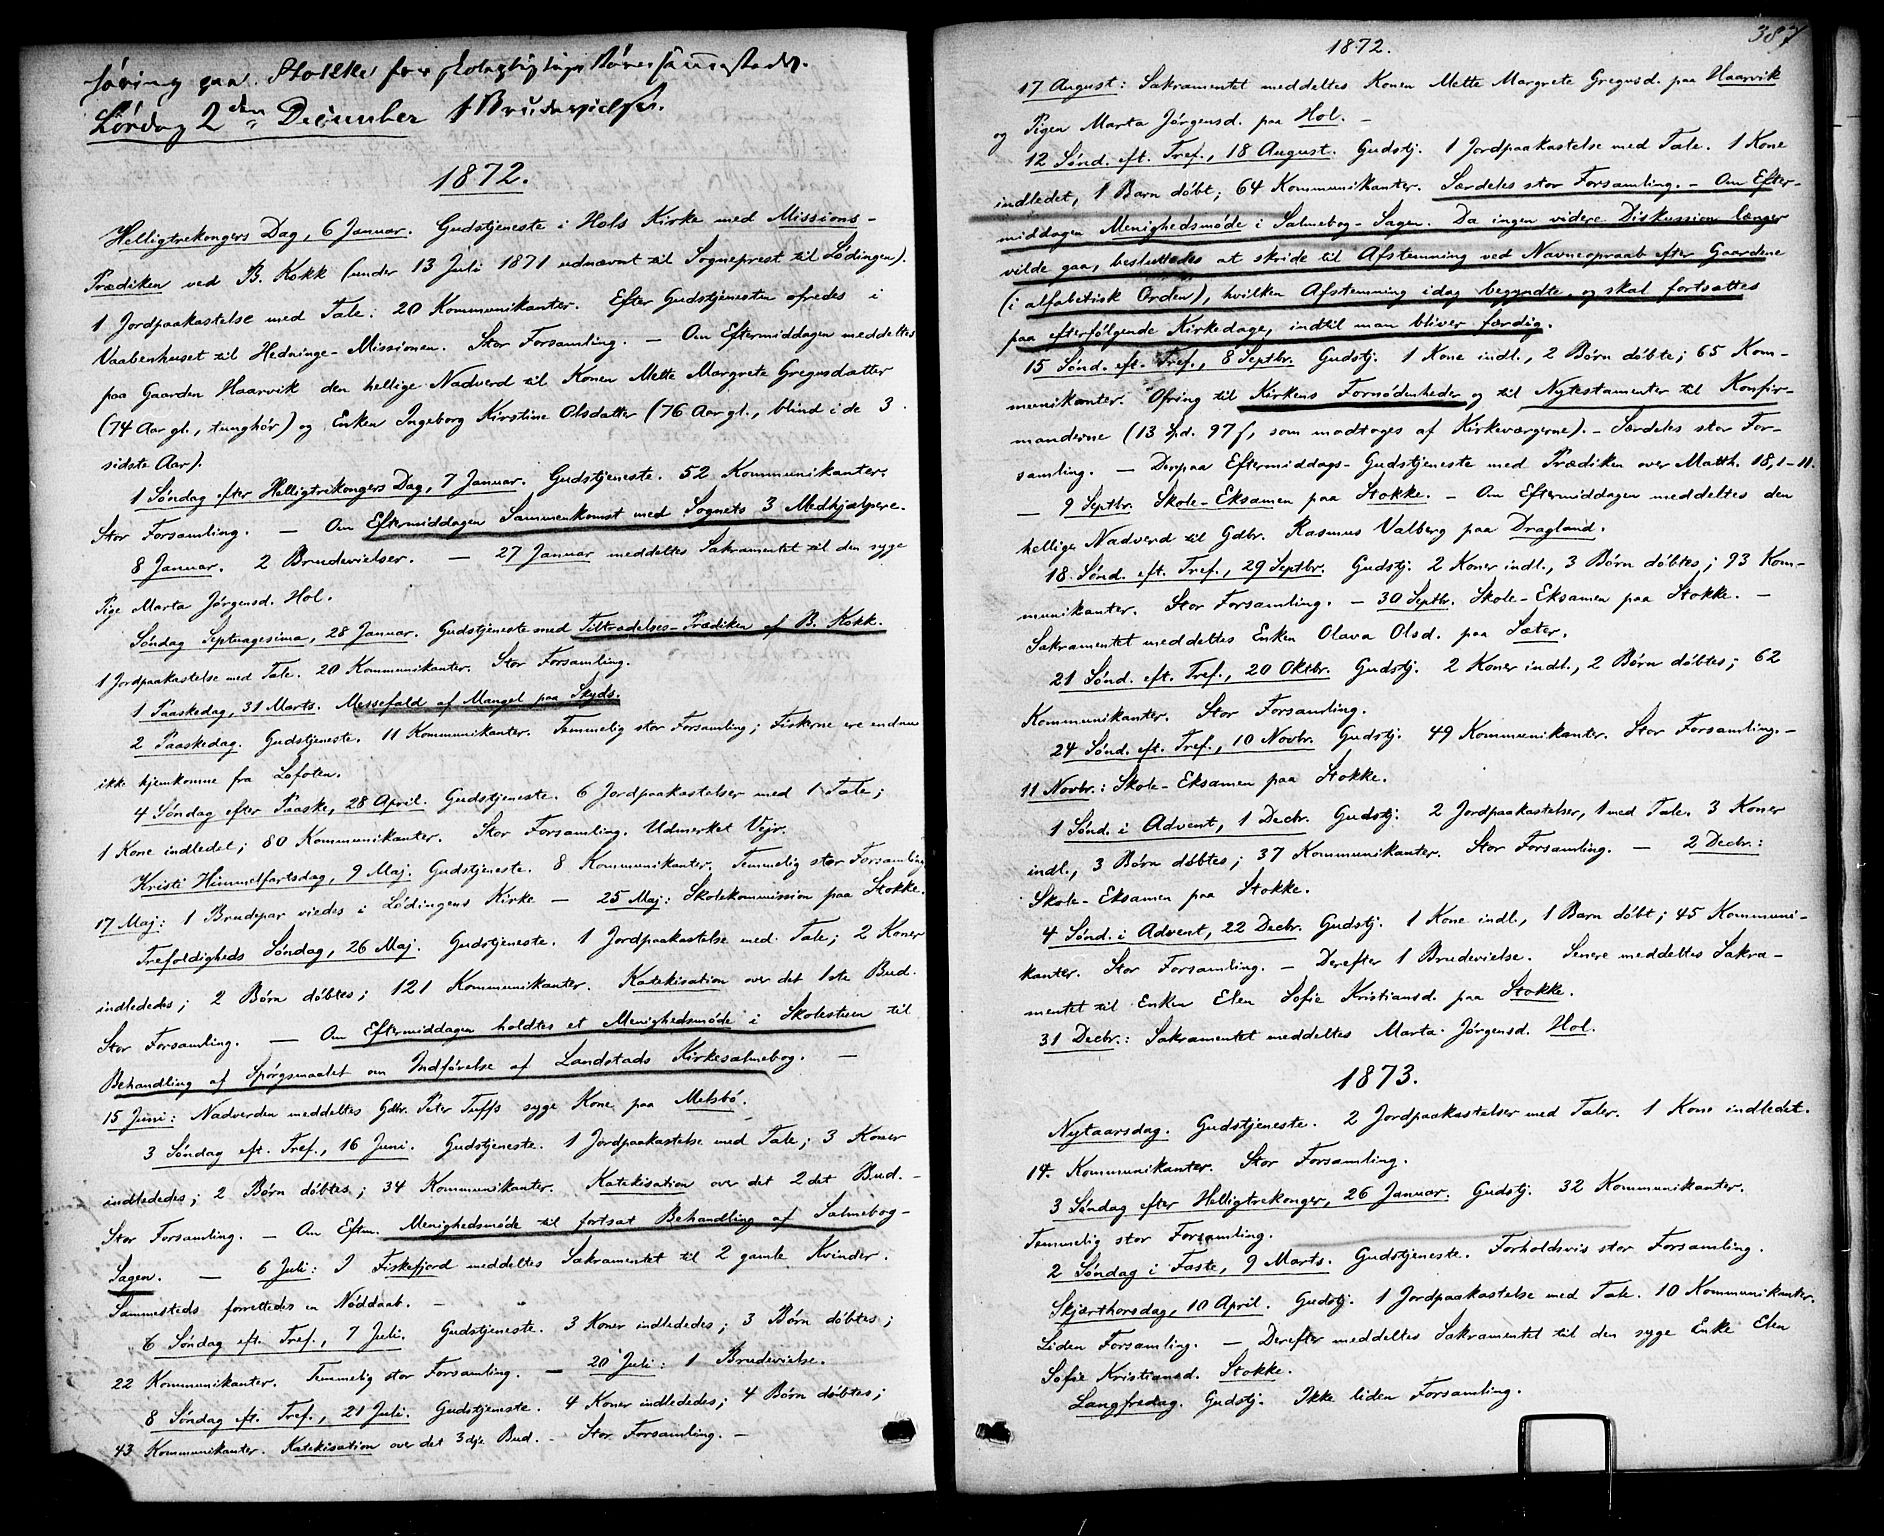 paa Stokke for
Lørdag 2den December 1 Brudevielse.
1872.
Helligtrekongers Dag, 6 Januar. Gudstjeneste i Hols Kirke med Missions-
Prædiken ved B. Kokk (under 13 Juli 1871 udnævnt til Sogneprest til Lödingen).
1 Jordpaakastelse med Tale. 20 Kommunikanter. Efter Gudstjenesten ofredes i
Vaabenhuset til Hedninge-Missionen. Stor Forsamling. — Om Eftermiddagen meddeltes
paa Gaarden Haarvik den hellige Nadverd til Konen Mette Margrete Gregusdatter
(74 Aar gl., tunghør) og Enken Ingeborg Kirstine Olsdatter (76 Aar gl., blind i de 3
sidste Aar).
1 Søndag efter Helligtrekongers Dag, 7 Januar. Gudstjeneste. 52 Kommunikanter.
Stor Forsamling. — Om Eftermiddagen Sammenkomst med Sognets 3 Medhjælpere.
8 Januar. 2 Brudevielser. — 27 Januar meddeltes Sakramentet til den syge
Pige Marta Jørgensd. Hol.
Søndag Septuagesima, 28 Januar. Gudstjeneste med Tiltrædelses-Prædiken af B. Kokk.
1 Jordpaakastelse med Tale. 20 Kommunikanter. Stor Forsamling.
1 Paaskedag, 31 Marts. Messefald af Mangel paa Skyds.
2 Paaskedag. Gudstjeneste. 11 Kommunikanter. Temmelig stor Forsamling; Fiskerne ere endnu
ikke hjemkomne fra Lofoten.
4 Søndag efter Paaske, 28 April. Gudstjeneste. 6 Jordpaakastelser med 1 Tale;
1 Kone indledet; 80 Kommunikanter. Stor Forsamling. Udmerket Vejr.
Kristi Himmelfartsdag, 9 Maj. Gudstjeneste. 8 Kommunikanter. Temmelig stor Forsamling
17 Maj: 1 Brudepar viedes i Lødingens Kirke — 25 Maj: Skolekommission paa Stokke.
Trefoldigheds Søndag, 26 Maj. Gudstjeneste. 1 Jordpaakastelse med Tale; 2 Koner
indledes; 2 Børn døbtes; 121 Kommunikanter. Katekisation over det 1ste Bud.
Stor Forsamling. — Om Eftermiddagen holdtes et Menighedsmøde i Skolestuen til
Behandling af Spørgsmaalet om Indførelse af Landstads Kirkesalmebog. —
15 Juni: Nadverden meddeltes Gdbr. Peter Tuffs syge Kone paa Melsbø.
3 Søndag eft. Tref., 16 Juni. Gudstjeneste. 1 Jordpaakastelse med Tale; 3 Koner
indlededes; 2 Børn døbtes; 34 Kommunikanter. Katekisation over det 2det Bud. -
Stor Forsamling. — Om Eftm. Menighedsmøde til fortsat Behandling af Salmebog-
Sagen. — 6 Juli: I Fiskefjord meddeltes Sakramentet til 2 gamle Kvinder.
Sammesteds forrettedes en Nøddaab. -
6 Søndag eft. Tref., 7 Juli. Gudstjeneste. 3 Koner indlededes; 3 Børn døbtes;
22 Kommunikanter. Temmelig stor Forsamling. — 20 Juli: 1 Brudevielse.
8 Søndag eft. Tref., 21 Juli. Gudstjeneste. 4 Koner indlededes; 4 Børn døbtes;
43 Kommunikanter. Katekisation over det 3dje Bud. — Stor Forsamling. —
387
1872.
17 August: Sakramentet meddeltes Konen Mette Margrete Gregusd. paa Haarvik
og Pigen Marta Jørgensd. paa Hol. —
12 Sønd. eft. Tref., 18 August. Gudstj. 1 Jordpaakastelse med Tale. 1 Kone
indledet, 1 Barn døbt; 64 Kommunikanter. Særdeles stor Forsamling. — Om Efter-
middagen Menighedsmøde i Salmebog-Sagen. Da ingen videre Diskussion længer
vilde gaa, besluttedes at skride til Afstemning ved Navneopraab efter Gaardene
(i alfabetisk Orden), hvilken Afstemning idag begyndte og skal fortsættes
paa efterfølgende Kirkedage, indtil man bliver færdig.
15 Sønd. eft. Tref., 8 Septbr. Gudstj. 1 Kone indl., 2 Børn døbte; 65 Kom-
munikanter. Ofring til Kirkens Fornødenheder og til Nytestamenter til Konfir-
manderne (13 Spd. 97 ſ, som modtoges af Kirkeværgerne). — Særdeles stor For-
samling. — Derpaa Eftermiddags-Gudstjeneste med Prædiken over Matth. 18, 1-11.
— 9 Septbr. Skole-Eksamen paa Stokke. — Om Eftermiddagen meddeltes den
hellige Nadverd til Gdbr. Rasmus Valberg paa Dragland.
18. Sønd. eft. Tref., 29 Septbr. Gudstj. 2 Koner indl., 3 Børn døbtes; 93 Kom-
munikanter. Stor Forsamling. — 30 Septbr. Skole-Eksamen paa Stokke. —
Sakramentet meddeltes Enken Olava Olsd. paa Sæter.
21 Sønd. eft. Tref., 20 Oktbr. Gudstj. 2 Koner indl., 2 Børn døbtes; 62
Kommunikanter. Stor Forsamling.
24 Sønd. eft. Tref., 10 Novbr. Gudstj. 49 Kommunikanter. Stor Forsamling. —
11 Novbr.: Skole-Eksamen paa Stokke.
1 Sønd. i Advent, 1 Decbr. Gudstj. 2 Jordpaakastelser, 1 med Tale. 3 Koner
indl., 3 Børn døbtes; 37 Kommunikanter. Stor Forsamling. — 2 Decbr.:
Skole-Eksamen paa Stokke.
4 Sønd. i Advent, 22 Decbr. Gudstj. 1 Kone indl., 1 Barn døbt; 45 Kommuni-
kanter. Stor Forsamling. — Derefter 1 Brudevielse. Senere meddeltes Sakra-
mentet til Enken Elen Sofie Kristiansd. paa Stokke.
31 Decbr.: Sakramentet meddeltes Marta Jørgensd. Hol.
1873.
Nytaarsdag. Gudstjeneste. 2 Jordpaakastelser med Taler. 1 Kone indledet.
14. Kommunikanter. Stor Forsamling.
3 Søndag efter Helligtrekonger, 26 Januar. Gudstj. 32 Kommunikanter.
Temmelig stor Forsamling.
2 Søndag i Faste, 9 Marts. Gudstjeneste. Forholdsvis stor Forsamling.
Skjærthorsdag, 10 April. Gudstj. 1 Jordpaakastelse med Tale. 10 Kommunikanter.
Liden Forsamling. — Derefter meddeltes Sakramentet til den syge Enke Elen
Sofie Kristiansd. Stokke.
Langfredag. Gudstj. Ikke liden Forsamling.